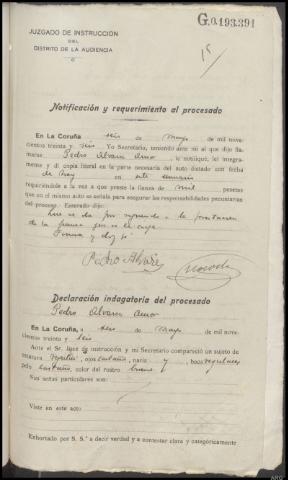 JUZGADO DE INSTRUCCION
DEL
DISTRITO DE LA AUDIENCIA
G.0.193.391
15
Notificación y requerimiento al procesado
En La Coruña seis de Mayo de mil nove-
cientos treinta y seis Yo Secretario, teniendo ante mi al que dijo lla-
marse Pedro Alvarez Amor le notifiqué, leí íntegra-
mente y di copia literal en la parte necesaria del auto dictado con fecha
de hoy en este sumario
requiriéndole a la vez a que preste la fianza de mil pesetas
que en el mismo auto se señala para asegurar las responsabilidades pecuniarias
del proceso. Enterado dijo:
que se da por
de la fianza que se le exige
Firma y doy fe
Pedro Alvarez
Declaración indagatoria del procesado
Pedro Alvarez Amor
En La Coruña, a seis de Mayo de mil nove-
cientos treinta y seis
Ante el Sr. Juez de instrucción y mi Secretario compareció un sujeto de
estatura regular, ojos castaño, nariz y boca regulares,
pelo castaño, color del rostro bueno
Sus señas particulares son:
Viste en este acto:
Exhortado por S. S.ª a decir verdad y a contestar clara y categóricamente